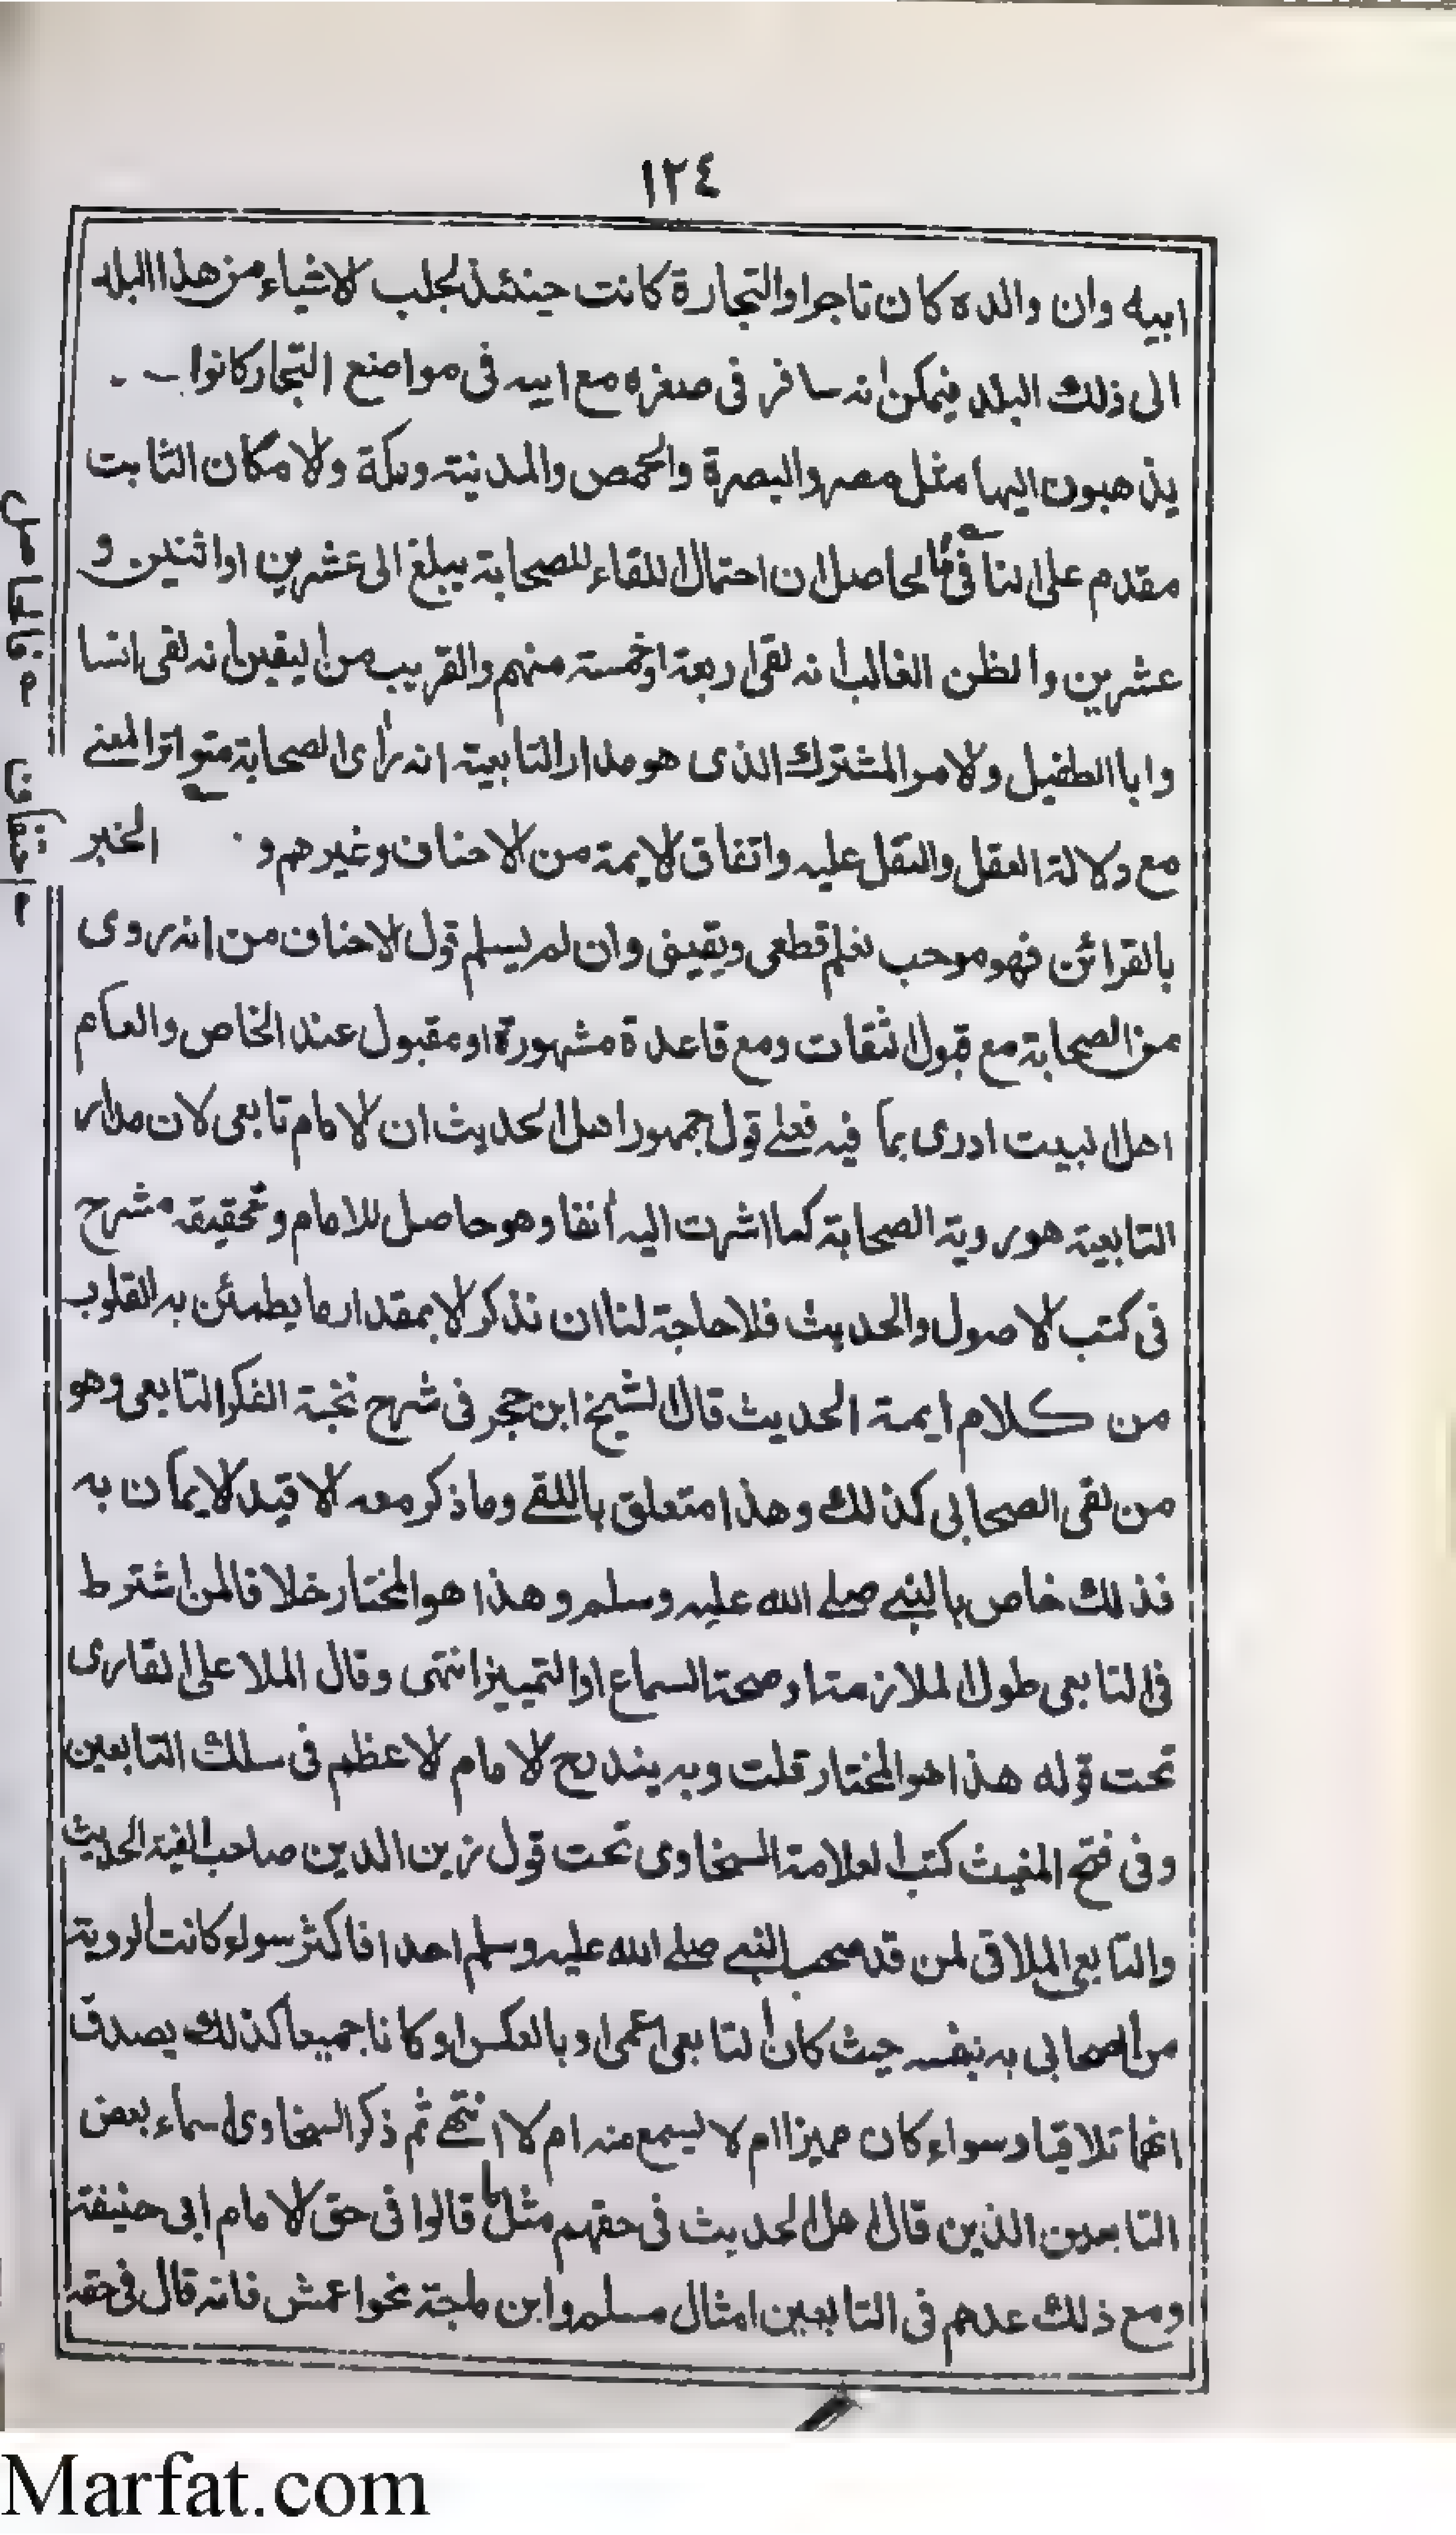 ١٢٤
ابيه وان والده كان تاجرا والتجارة كانت حينئذ لجلب الاشياء من هذا البلد
الى ذلك البلد فيمكن انه سافر فى صغره مع ابيه فى مواضع التجار كانوا
يذهبون اليها مثل مصر والبصرة والحمص والمدينة ومكة والامكان الثابت
مقدم على النافى فالحاصل ان احتمال اللقاء للصحابة يبلغ الى عشرين او اثنين و
عشرين والظن الغالب انه لقى اربعة او خمسة منهم والقريب من اليقين انه لقى انسا
وابا الطفيل والامر المشترك الذى هو مدار التابعية انه رأى الصحابة متواتر المعنے
مع دلالة العقل والنقل عليه واتفاق الايمة من الاحناف وغيرهم و الخبر
بالقرائن فهو موجب لعلم قطعى ويقينى وان لم يسلم قول الاحناف من انه روى
من الصحابة مع قبول الثقات ومع قاعدة مشهورة او مقبول عند الخاص والعام
اهل البيت ادرى بما فيه فعلے قول جمهور اهل الحديث ان الامام تابعى لان مدار
التابعية هو روية الصحابة كما اشرت اليه أنفا وهو حاصل للامام وتحقيقه مشرح
فى كتب الاصول والحديث فلا حاجة لنا ان نذكر الا بمقدار ما يطمئن به القلوب
من كلام ايمة الحديث قال الشيخ ابن حجر فى شرح نخبة الفكر التابعى وهو
من لقى الصحابى كذلك وهذا متعلق باللقے وما ذكر معه الا قيد الايمان به
فذلك خاص بالنبے صلے الله عليه وسلم وهذا هو المختار خلافا لمن اشترط
فى التابعى طول الملازمة او صحة السماع او التمييز انتهى وقال الملا على القارى
تحت قوله هذا هو المختار قلت وبه يندرج الامام الاعظم فى سلك التابعين
وفى فتح المغيث كتب العلامة السخاوى تحت قول زين الدين صاحب الفية الحديث
والتابعى الملاقى لمن قد صحب النبے صلے الله عليه وسلم احدا فاكثر سواء كانت الروية
من الصحابى به بنفسه حيث كان التابعى اعمى او بالعكس او كانا جميعا كذلك يصدق
انهما تلاقيا وسواء كان مميزا ام لا يسمع منه ام لا انتهے ثم ذكر السخاوى اسماء بعض
التابعين الذين قال اهل الحديث فى حقهم مثل ما قالوا فى حق الامام ابى حنيفة
ومع ذلك عدهم فى التابعين امثال مسلم وابن ماجة نحو اعمش فانه قال فى حقه
Marfat.com